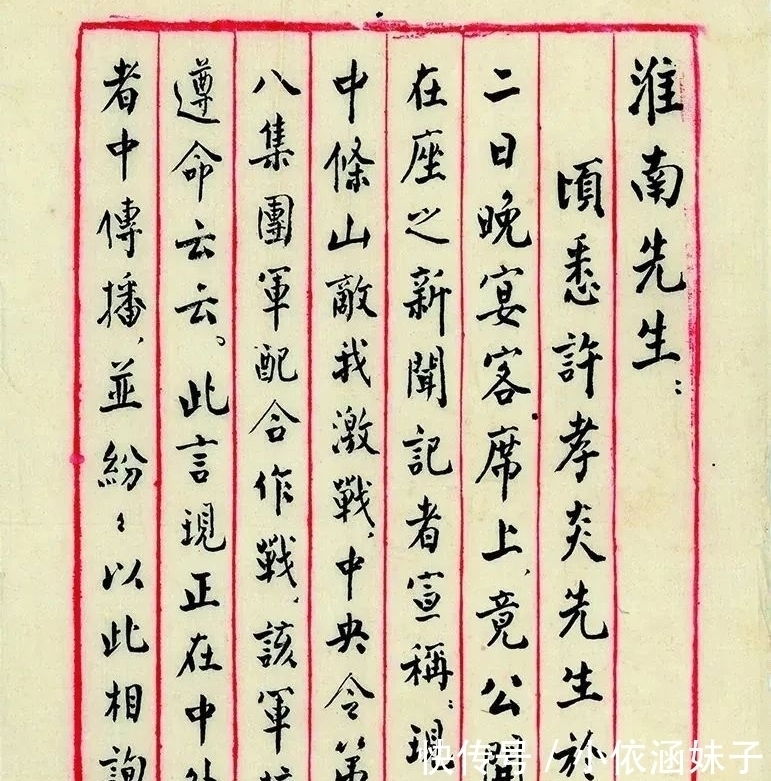 淮南先生：
頃悉許孝炎先生於
二日晚宴客，席上，竟公開
在座之新聞記者宣稱：現
中條山敵我激戰，中央令第
八集團軍配合作戰，該軍
遵命云云。此言現正在中外
者中傳播，並紛々以此相詢
快传号/小依涵妹子